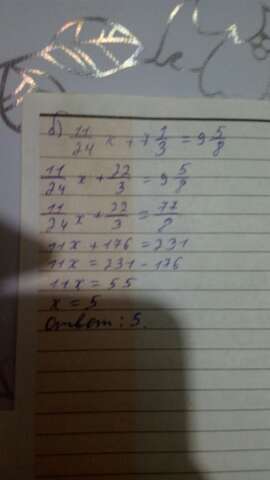 б) 11/24 x + 7 1/3 = 9 5/8
11/24 x + 22/3 = 9 5/8
11/24 x + 22/3 = 77/8
11x + 176 = 231
11x = 231 - 176
11x = 55
x = 5
Ответ: 5.